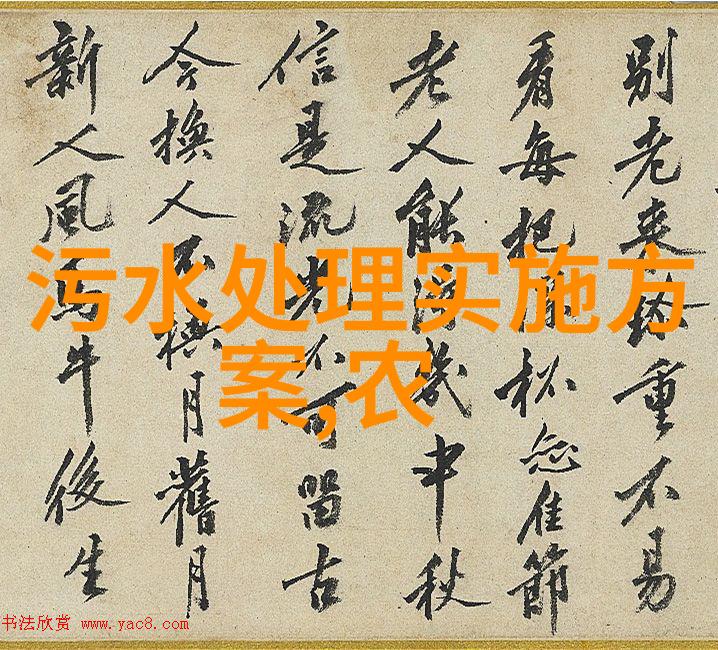 別老来重不易
看每把杯佳節
老人能得幾中秋
信是流光不可留古
今換人不換月舊月
新人風馬牛後生
污水处理实施方
案,农
书法欣赏 www.yac8.com